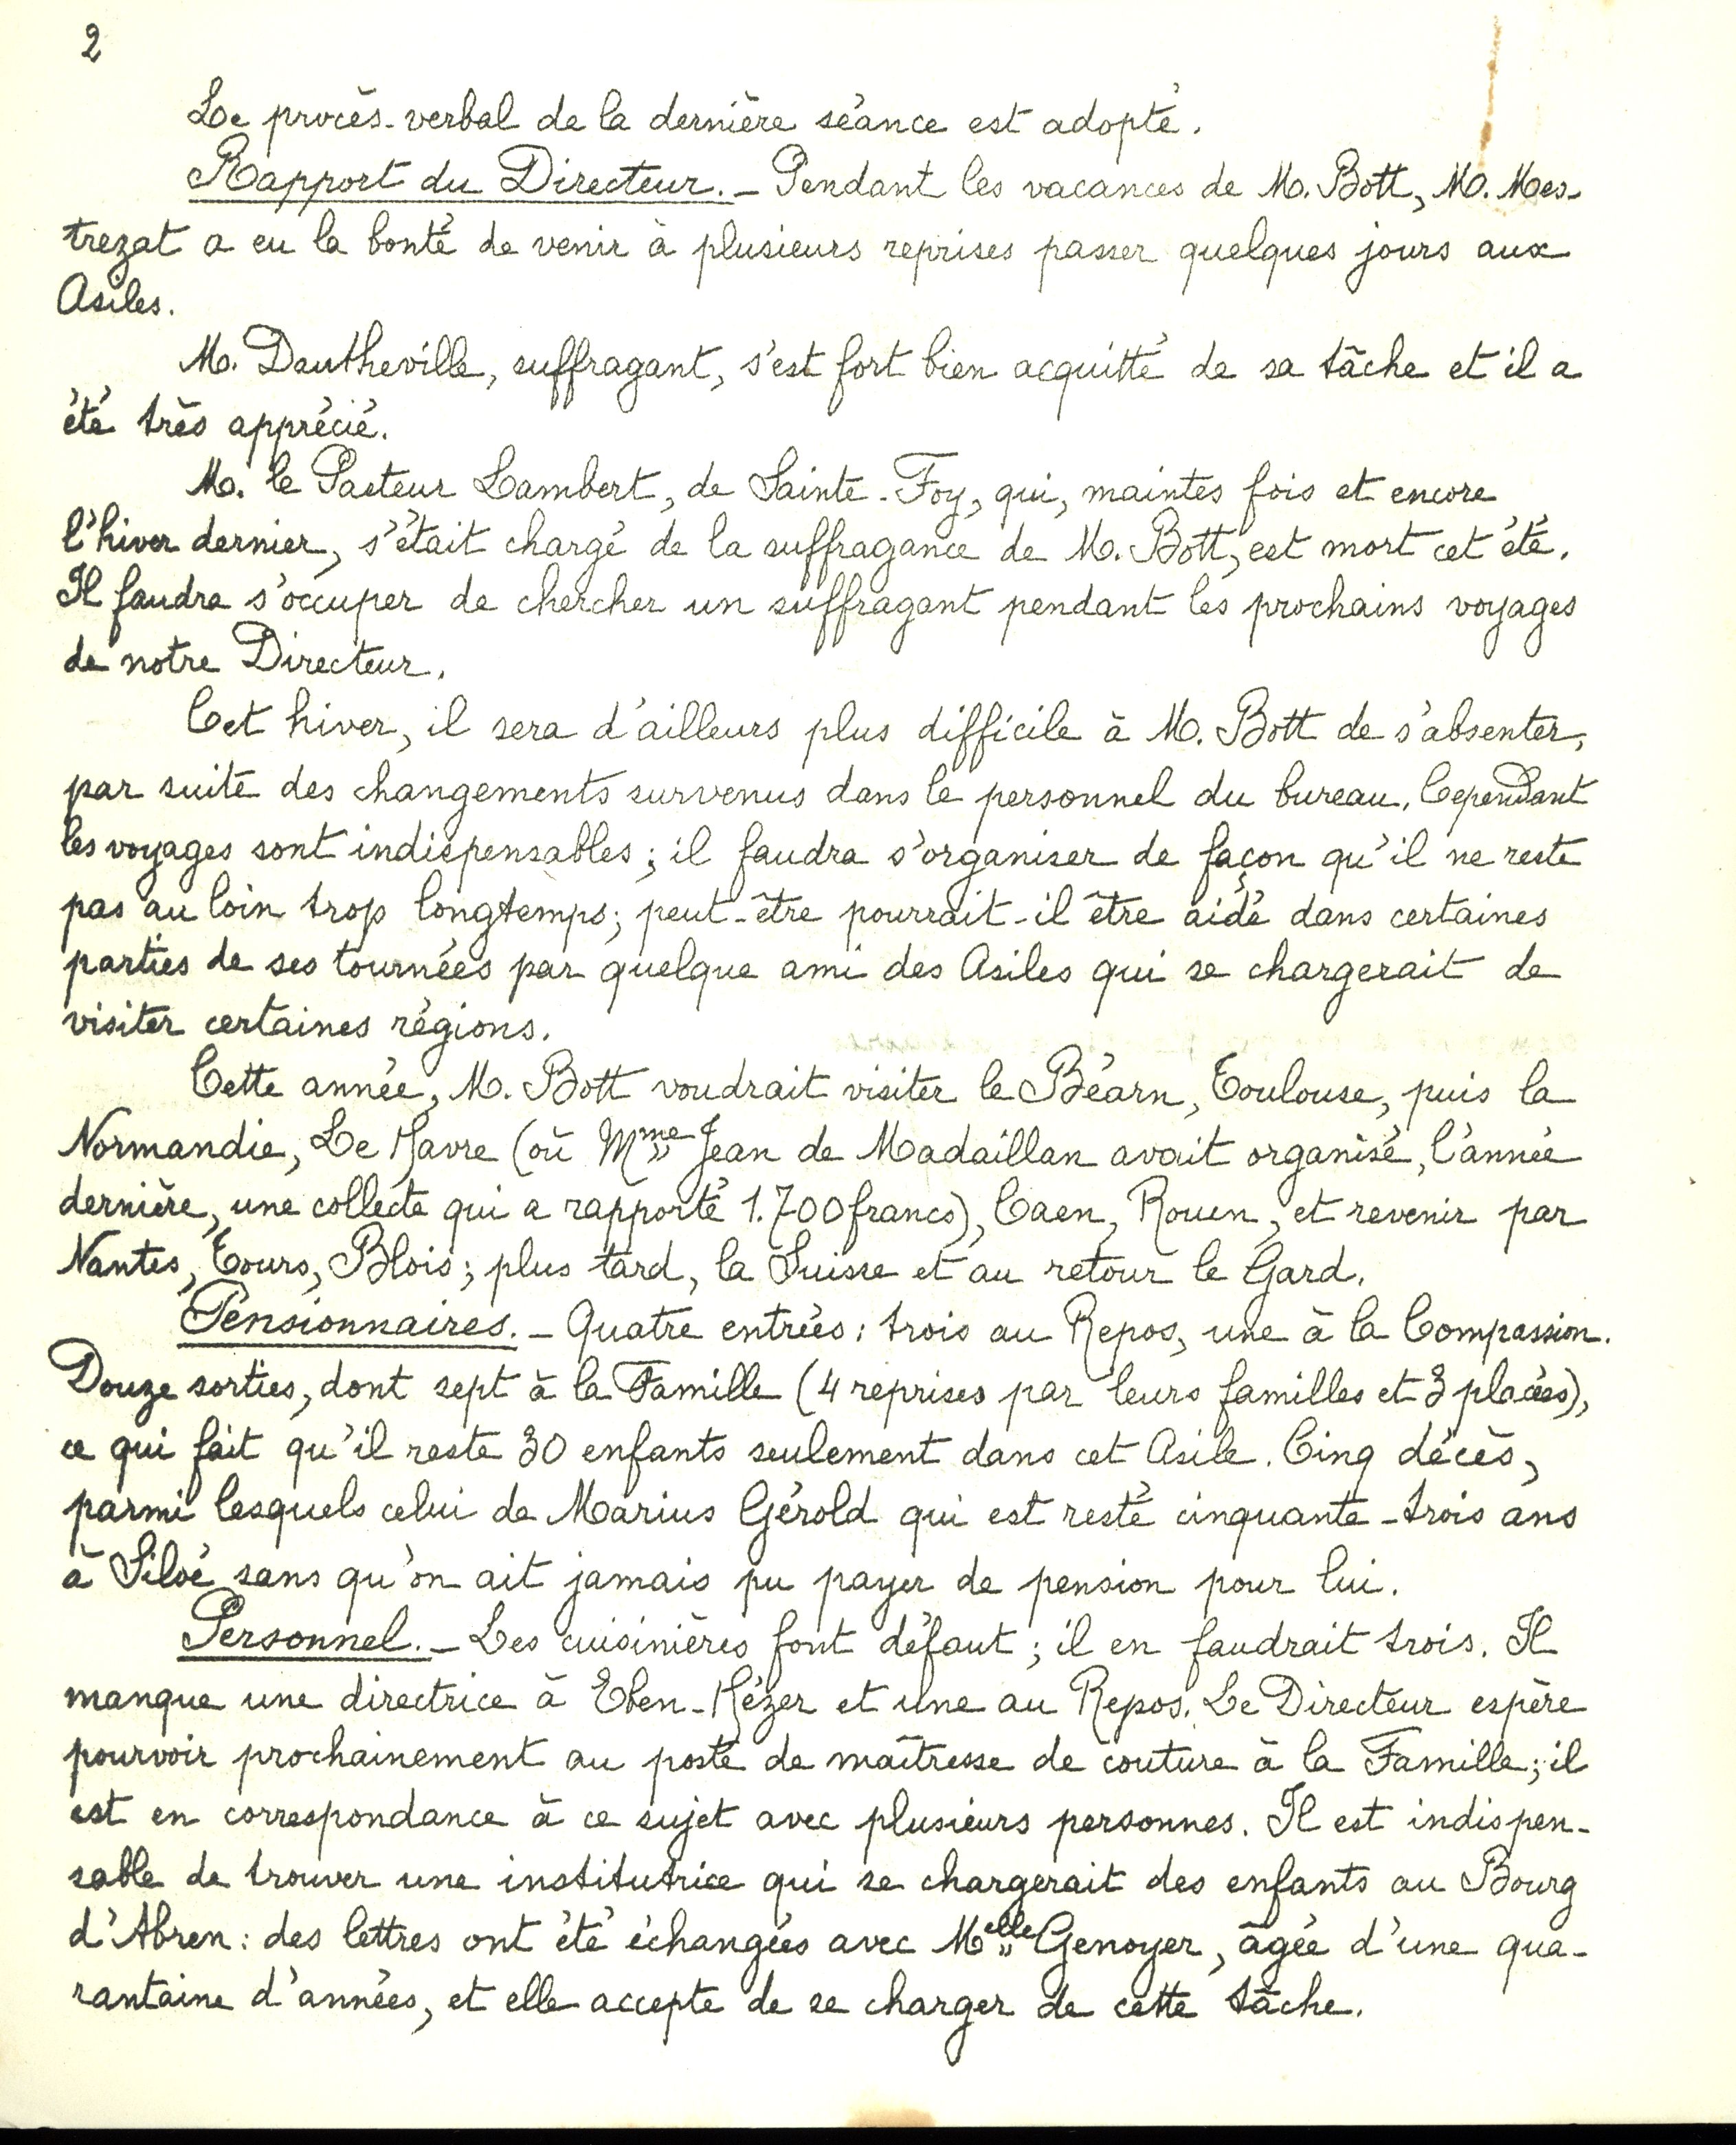 2
Le procès-verbal de la dernière séance est adopté.
Rapport du Directeur. - Pendant les vacances de M. Bott, M. Mes-
trezat a eu la bonté de venir à plusieurs reprises passer quelques jours aux
Asiles.
M. Dautheville, suffragant, s'est fort bien acquitté de sa tâche et il a
été très apprécié.
M. le Pasteur Lambert, de Sainte-Foy, qui, maintes fois et encore
l'hiver dernier, s'était chargé de la suffragance de M. Bott, est mort cet été.
Il faudra s'occuper de chercher un suffragant pendant les prochains voyages
de notre Directeur.
Cet hiver, il sera d'ailleurs plus difficile à M. Bott de s'absenter,
par suite des changements survenus dans le personnel du bureau. Cependant
les voyages sont indispensables ; il faudra s'organiser de façon qu'il ne reste
pas au loin trop longtemps ; peut-être pourrait-il être aidé dans certaines
parties de ses tournées par quelque ami des Asiles qui se chargerait de
visiter certaines régions.
Cette année, M. Bott voudrait visiter le Béarn, Toulouse, puis la
Normandie, Le Havre (où Mme Jean de Madaillan avait organisé, l'année
dernière, une collecte qui a rapporté 1.700 francs), Caen, Rouen, et revenir par
Nantes, Tours, Blois ; plus tard, la Suisse et au retour le Gard.
Pensionnaires. - Quatre entrées : trois au Repos, une à la Compassion.
Douze sorties, dont sept à la Famille (4 reprises par leurs familles et 3 placées),
ce qui fait qu'il reste 30 enfants seulement dans cet Asile. Cinq décès,
parmi lesquels celui de Marius Gérold qui est resté cinquante-trois ans
à Siloé sans qu'on ait jamais pu payer de pension pour lui.
Personnel. - Les cuisinières font défaut ; il en faudrait trois. Il
manque une directrice à Eben-Hézer et une au Repos. Le Directeur espère
pourvoir prochainement au poste de maîtresse de couture à la Famille ; il
est en correspondance à ce sujet avec plusieurs personnes. Il est indispen-
sable de trouver une institutrice qui se chargerait des enfants au Bourg
d'Abren : des lettres ont été échangées avec Melle Genoyer, âgée d'une qua-
rantaine d'années, et elle accepte de se charger de cette tâche.